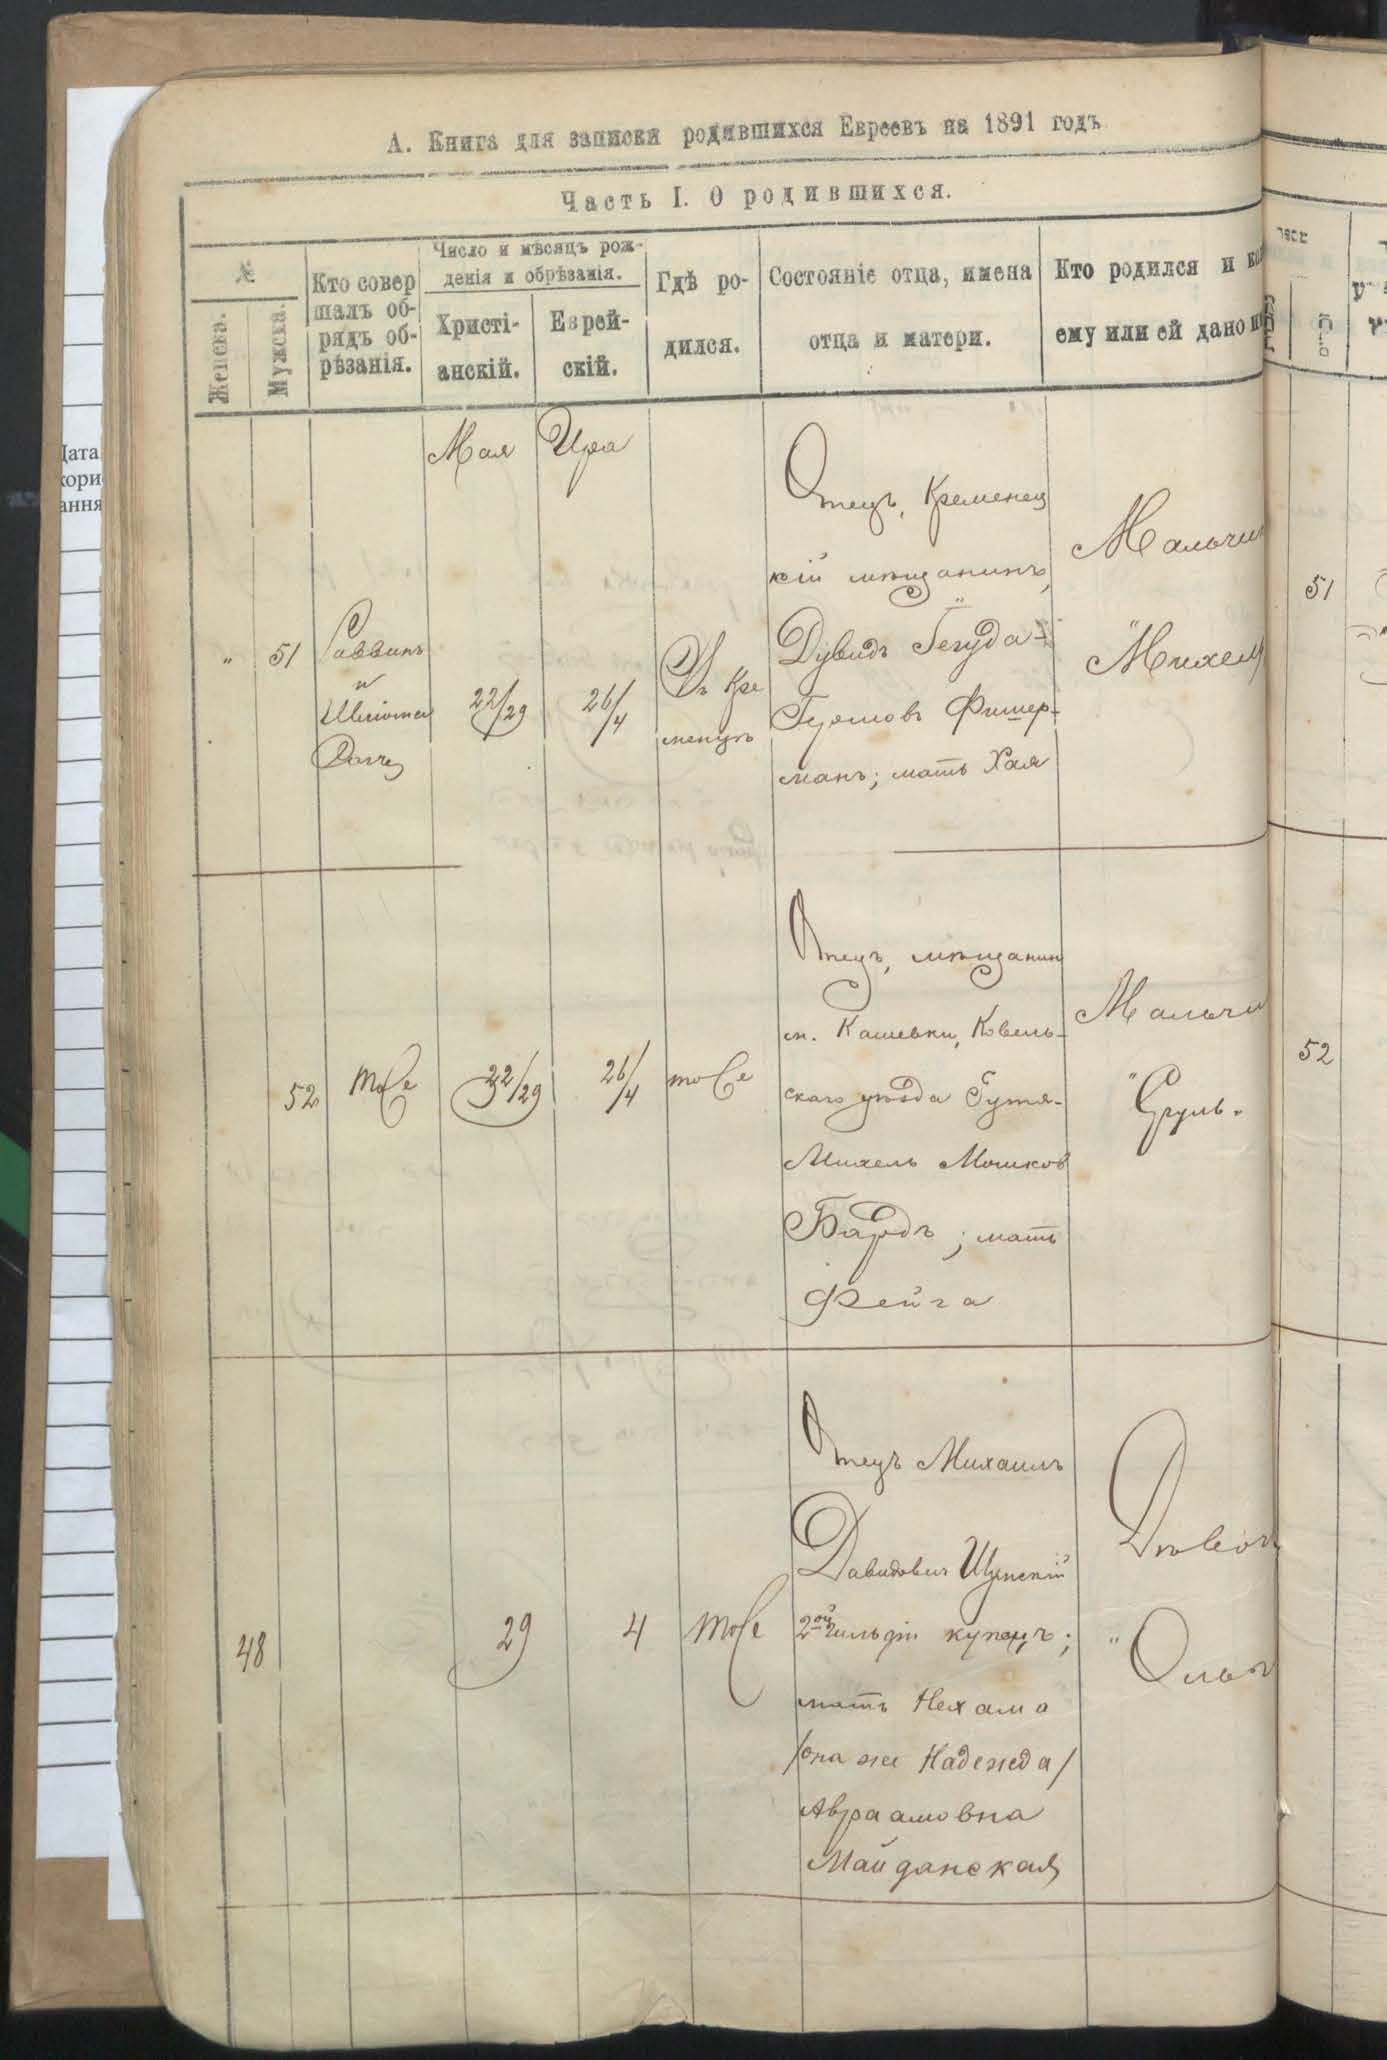 А. Книга для записки родившихся Евреевъ на 1891 годъ
Часть I. О родившихся.
№
Женска.
Мужска.
Кто совер
шалъ об-
рядъ об-
рѣзанія.
Число и мѣсяцъ рож-
денія и обрѣзанія.
Христі-
анскій.
Еврей-
скій.
Гдѣ ро-
дился.
Состояніе отца, имена
отца и матери.
Кто родился и
ему или ей дано
Мая
Ира
" 51
Раввинъ
и
22/29
26/4
Въ Кре
менцѣ
Отецъ, Кременец
кій мѣщанинъ,
Дувидъ Iегуда-
Фишер-
манъ; мать Хая
Мальчи
"Михель
51
52
тоже
22/29
26/4
тоже
Отецъ, мѣщанин
м. Кашевки, Ковель-
скаго уѣзда Гутя-
Михель Мошков
Бардъ; мать
Фейга
Мальчи
"Сруль.
52
48
29
4
тоже
Отецъ Михаилъ
Давидович Шумскій
2ой гильдіи купецъ;
мать Нехама
/она же Надежда/
Авраамовна
Майданская
Дѣвоч
"Ольг
Дата
кори
ання